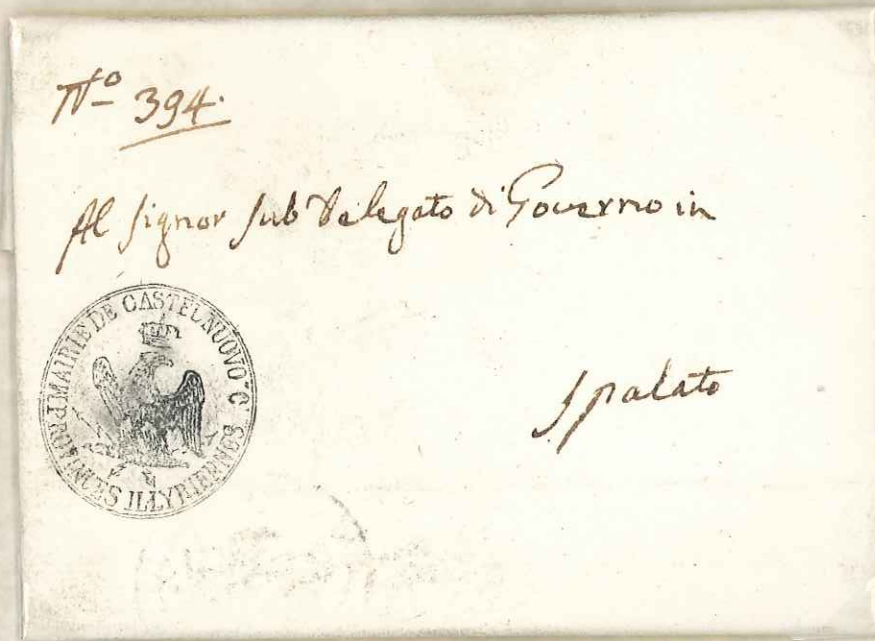 No 394.
Al Signor Sub Delegato di Governo in
Spalato
MAIRIE DE CASTELNUOVO
PROVINCES ILLYRIENNES